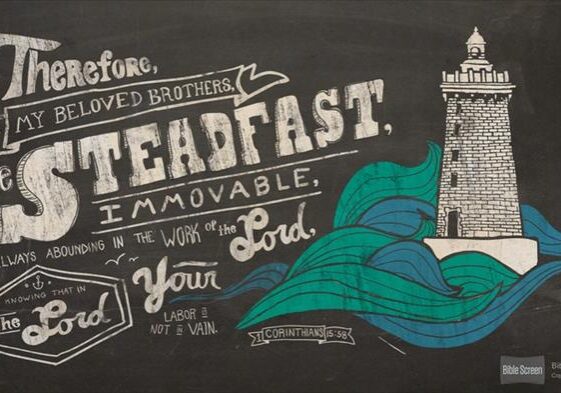 Therefore,
MY BELOVED BROTHERS,
e STEADFAST,
IMMOVABLE,
ALWAYS ABOUNDING IN THE WORK of the Lord,
KNOWING THAT IN
the Lord
Your
LABOR IS
NOT IN VAIN.
1 CORINTHIANS 15:58
Bible Screen